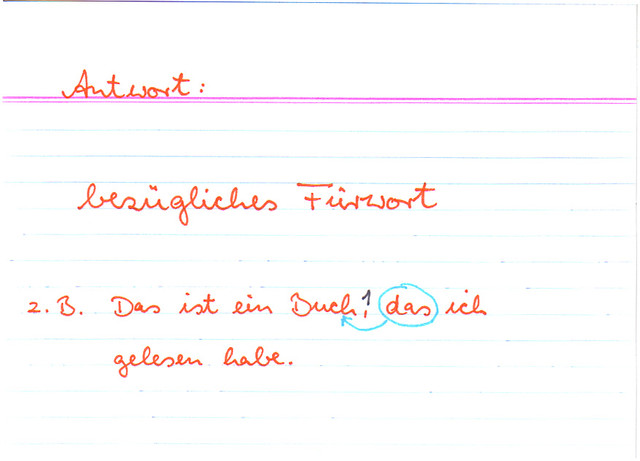 Antwort:
bezügliches Fürwort
z. B. Das ist ein Buch,! das ich
gelesen habe.